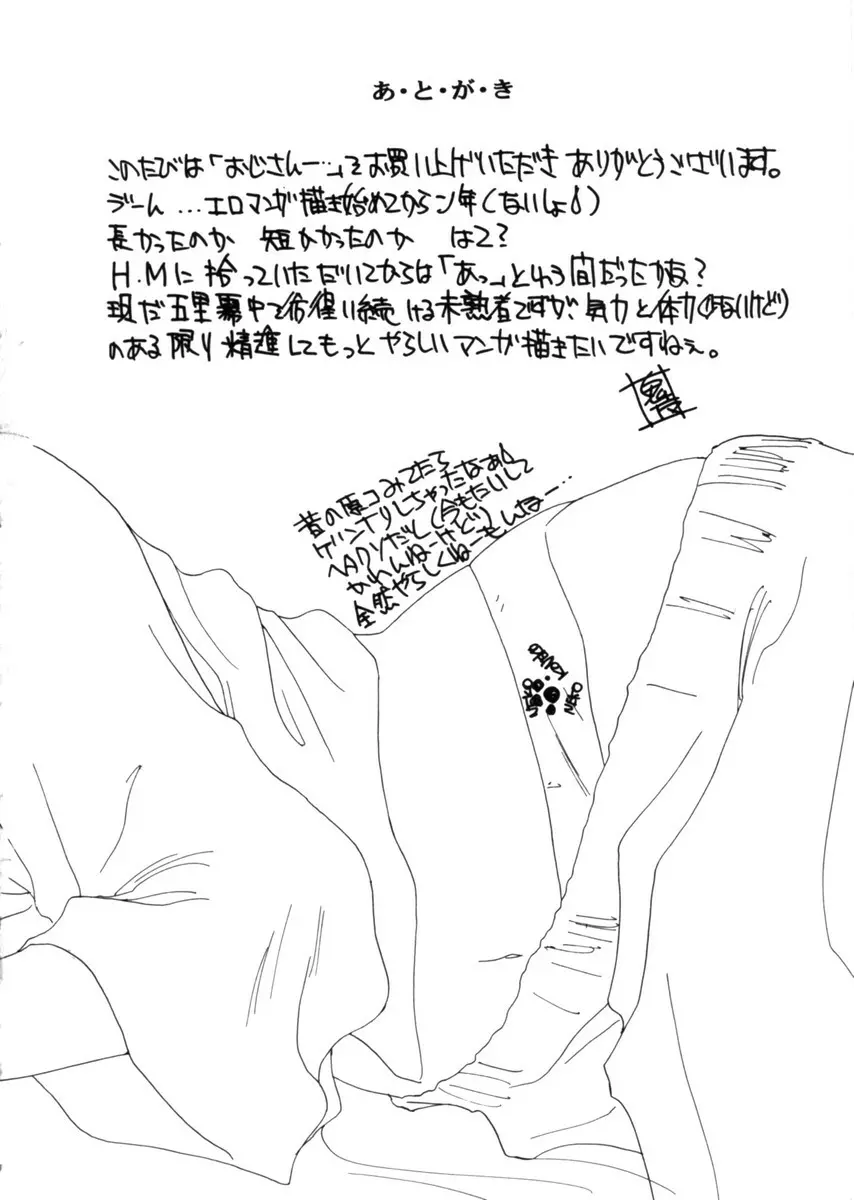 あ・と・が・き
このたびは「おじさんー…」をお買い上げいただき ありがとうございます。
うーん …エロマンガ描き始めてからン年(ないしょ)
長かったのか 短かかったのか はて?
H.Mに拾っていただいてからは「あっ」という間だったかな?
現だ五里霧中で彷徨い続ける未熟者ですが、気力と体力(はないけど)
のある限り精進してもっとやらしいマンガ描きたいですねぇ。
昔の原コみてたら
ゲンナリしちゃったなぁ
ヘタクソだと(今もたいして
かわんねーけど)
全然やらしくねーもんなー…
NEKO
NEKO